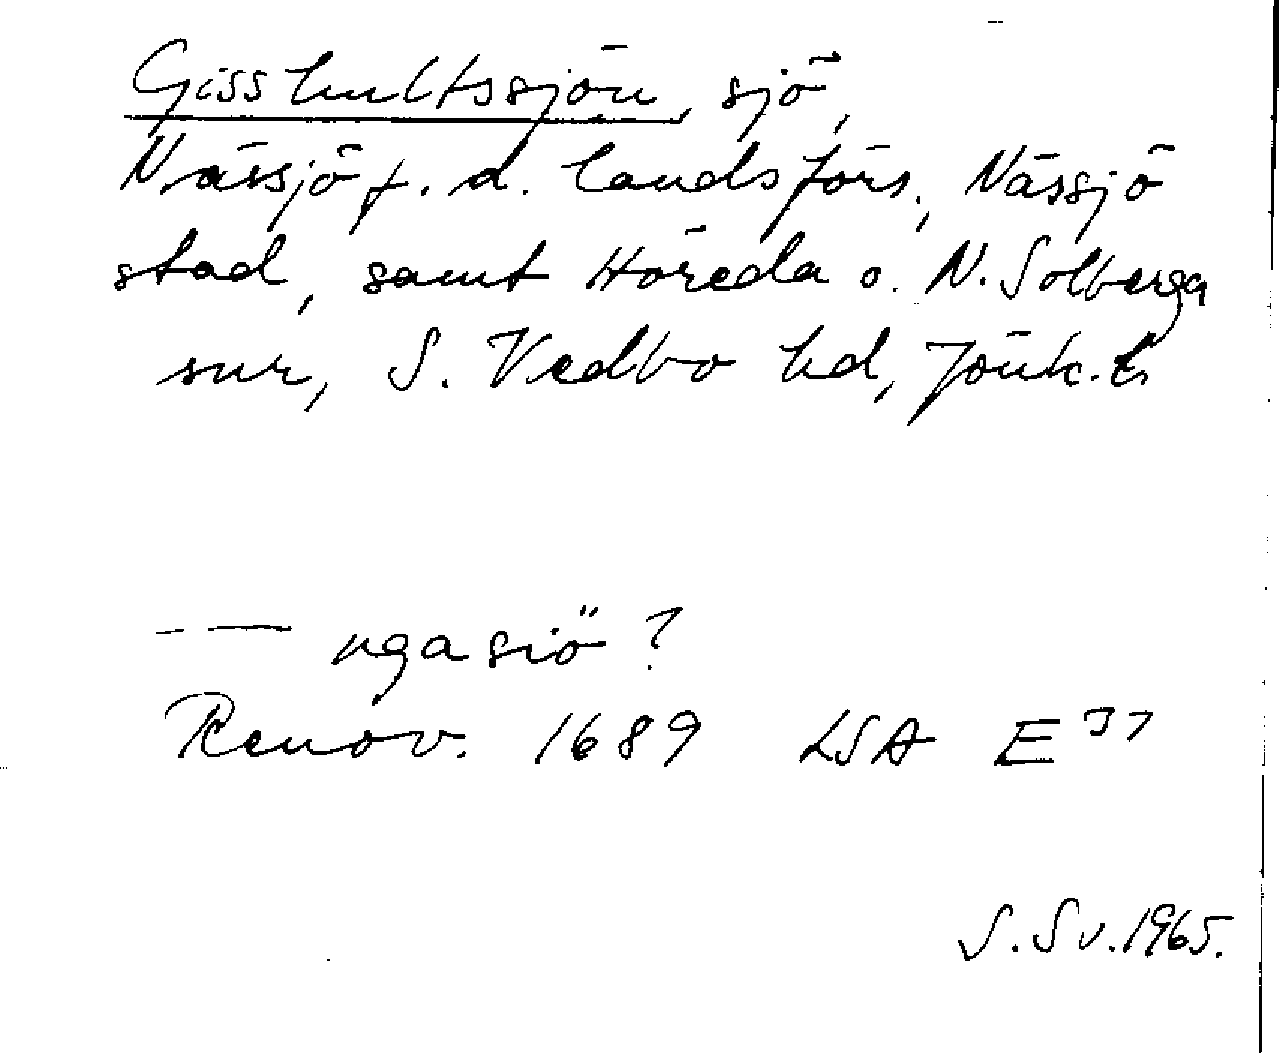 Gisshultssjön, sjö,
Nässjö f. d. landsförs., Nässjö
stad, samt Höreda o. N. Solberga
snr, S. Vedbo hd, Jönk. l.
- — ngasiö ?
Renov. 1689 LSA E 37
S. Sv. 1965.